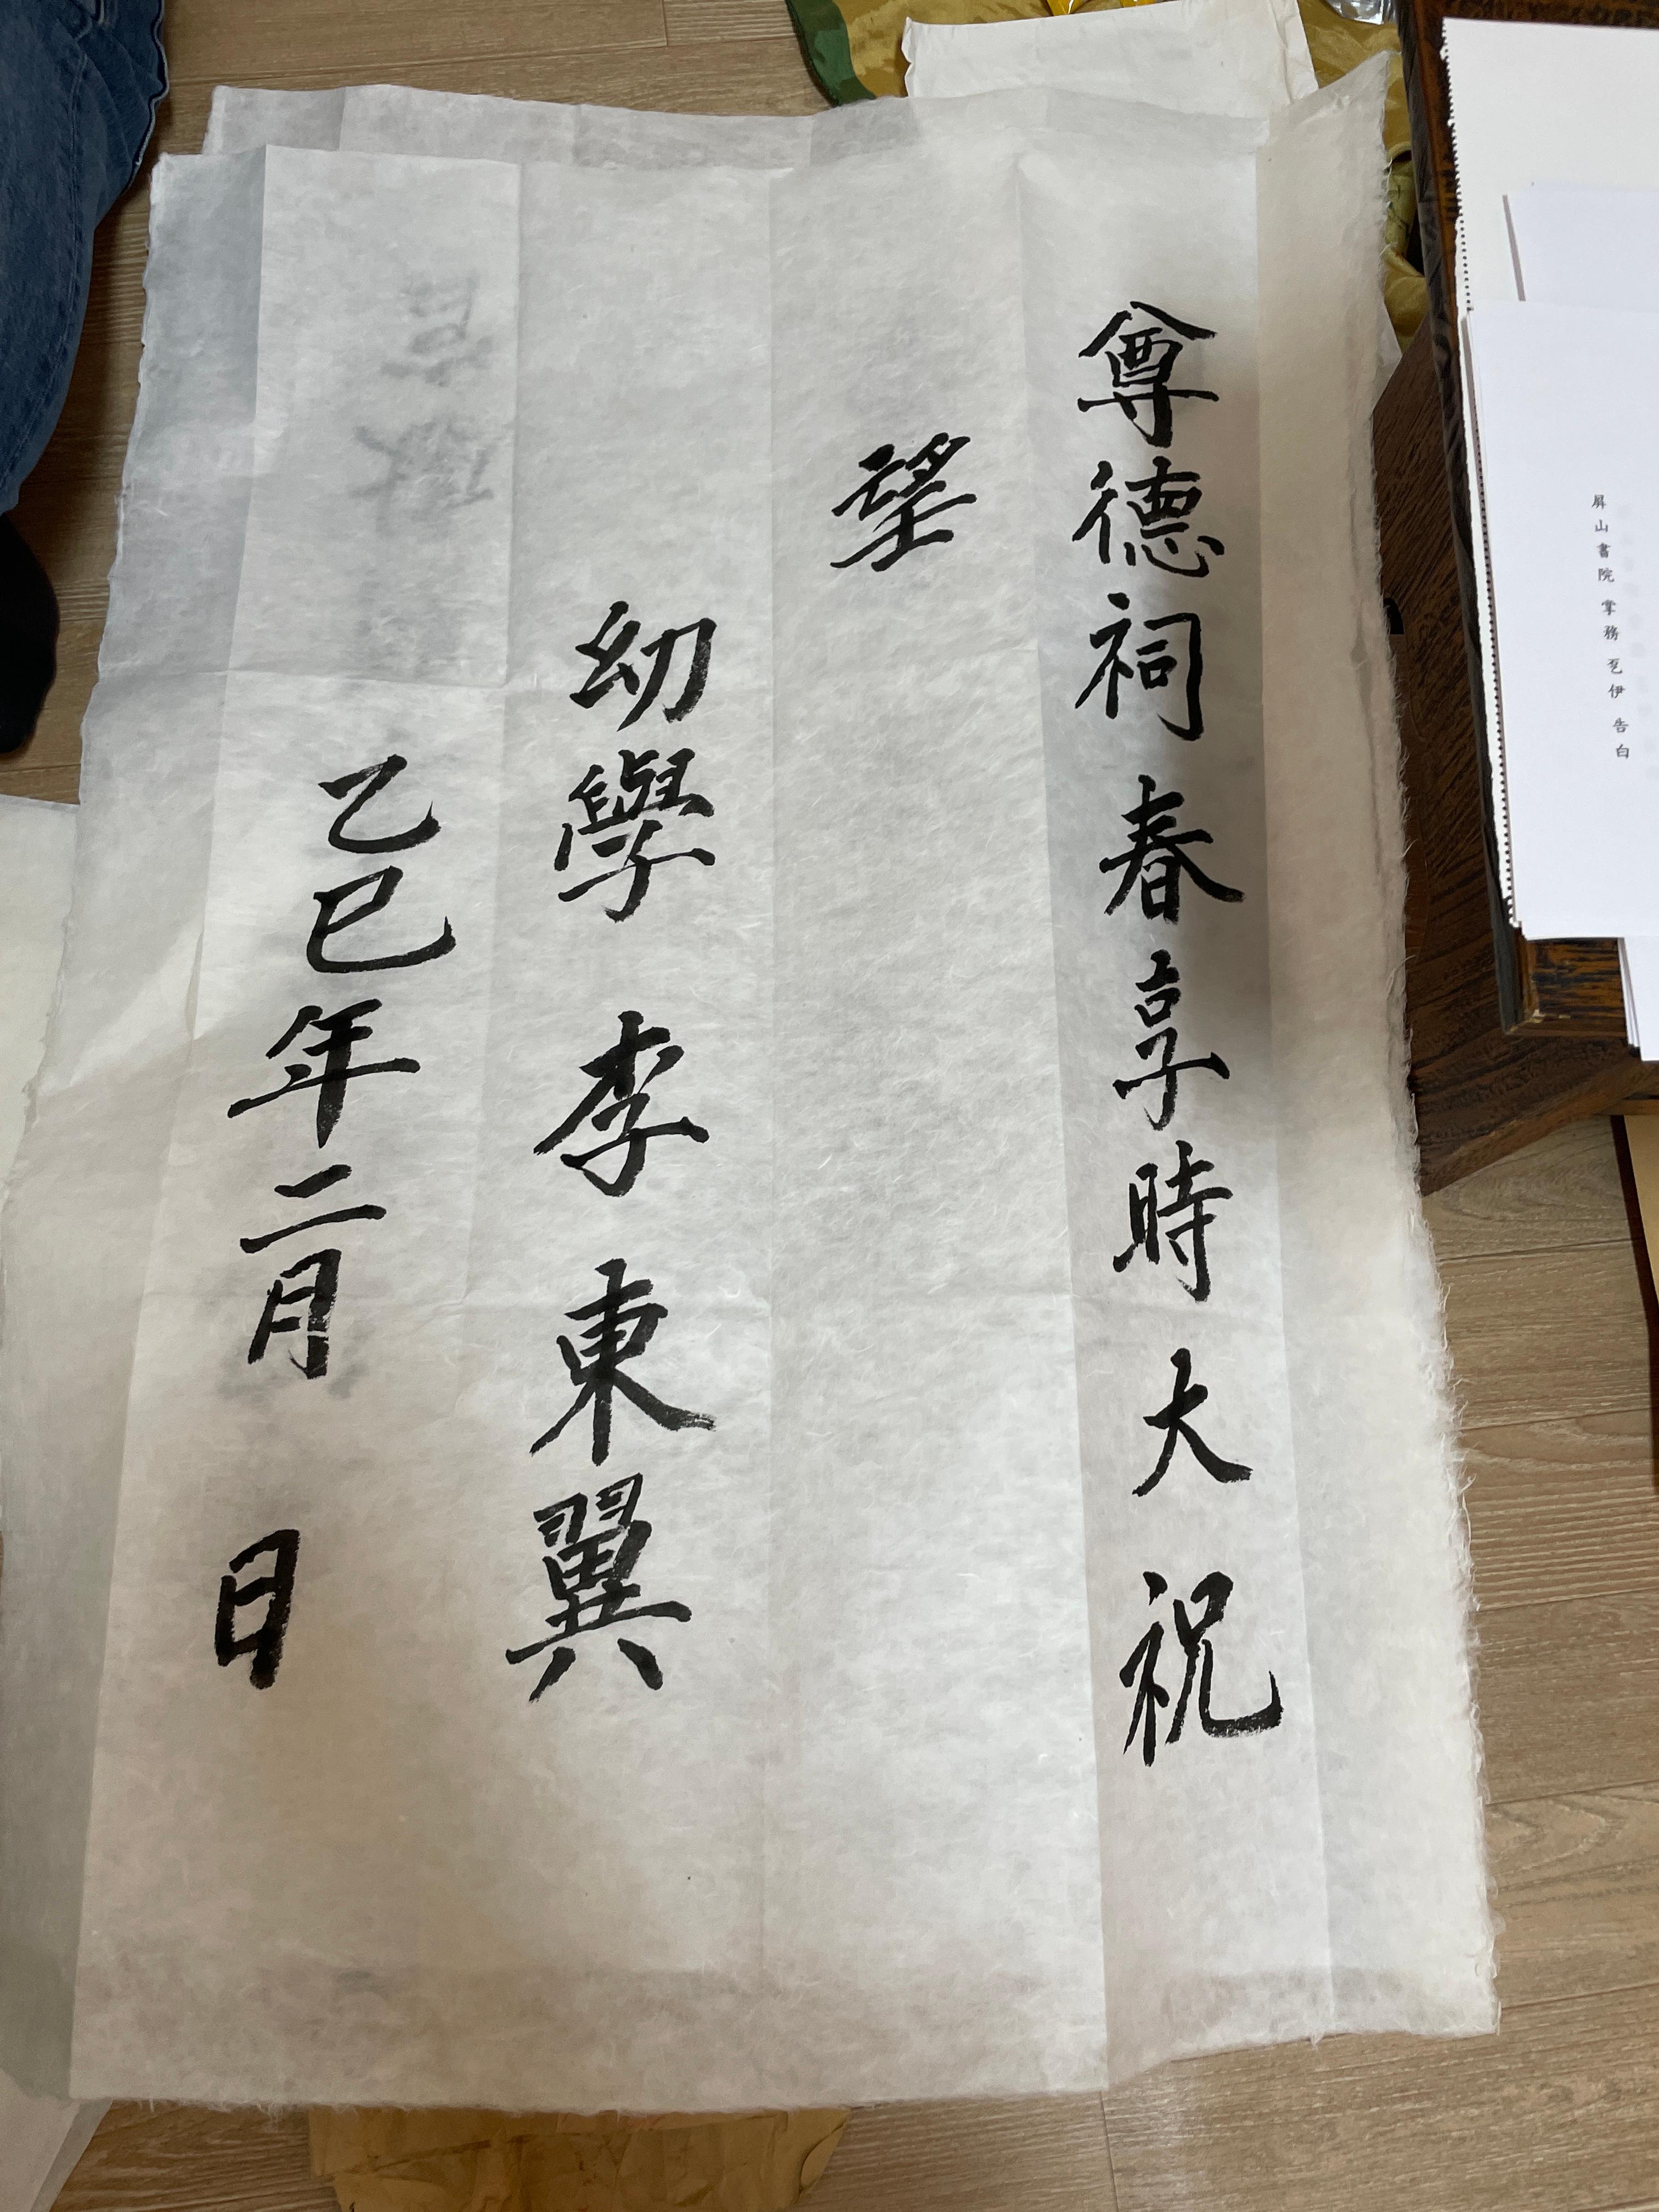 尊德祠春享時大祝
望
幼學 李東翼
乙巳年二月 日
屛山書院 掌務 乭伊 告白